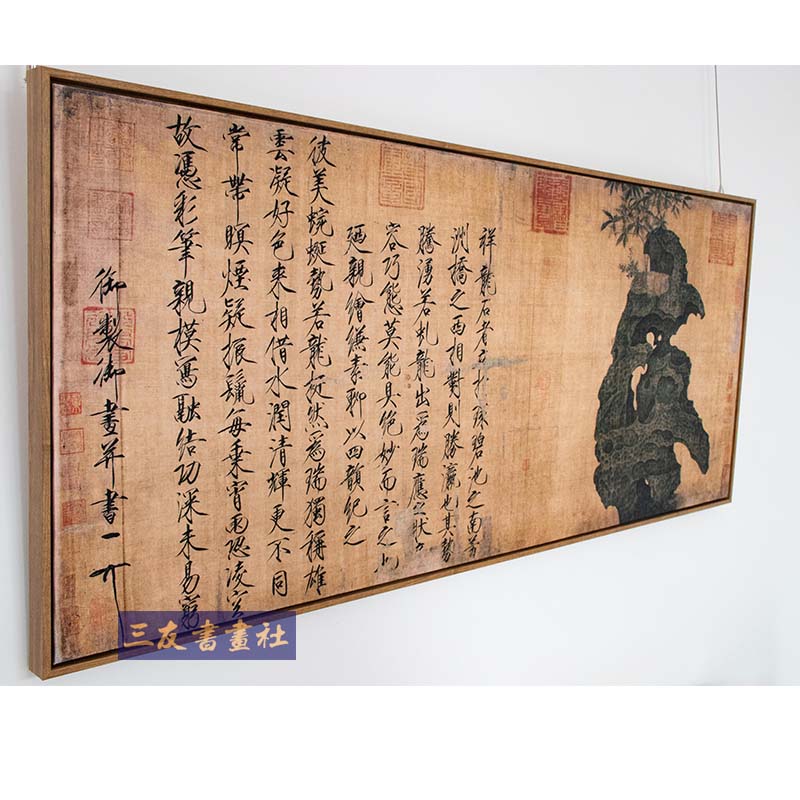 祥龍石者立於環碧池之南芳
洲橋之西相對則勝瀛也其勢
騰湧若虬龍出爲瑞應之狀奇
容巧態莫能具絕妙而言之也
廼親繪縑素聊以四韻紀之
彼美蜿蜒勢若龍挺然爲瑞獨稱雄
雲凝好色来相借水潤清輝更不同
常帶暝煙疑振鬣每乘宵雨恐凌空
故憑彩筆親模寫融結功深未易窮
御製御畫并書
三友書畫社